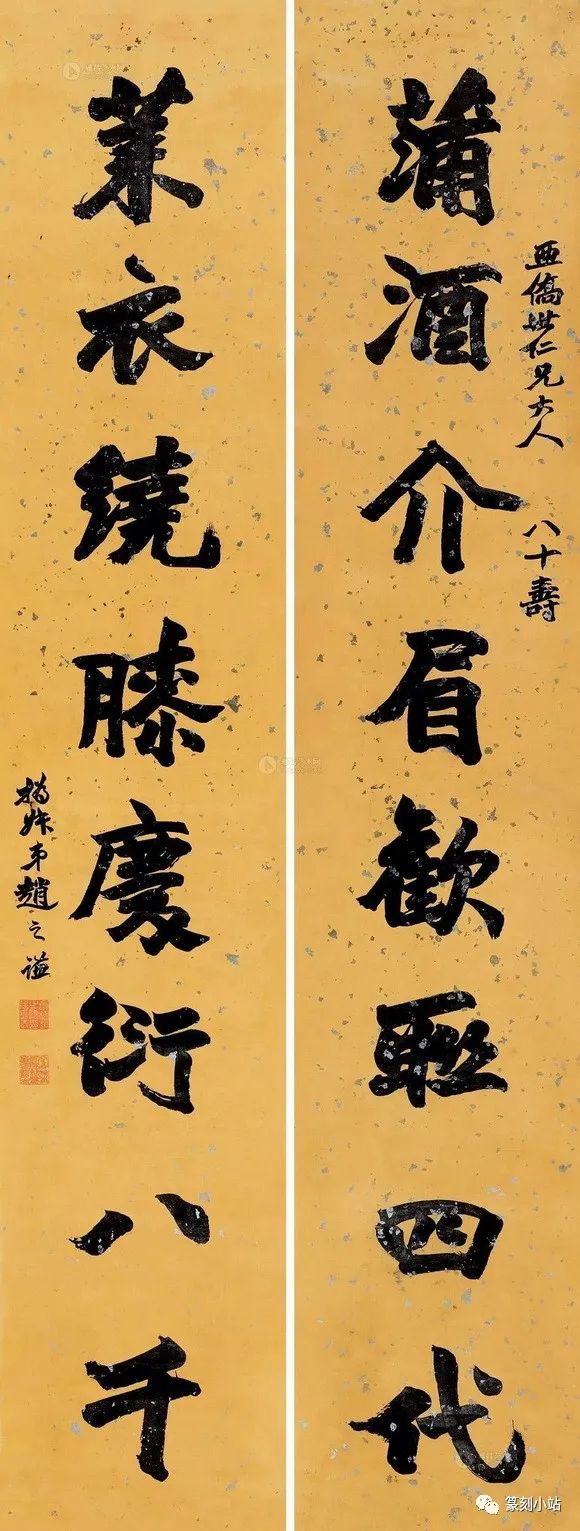 亞僑世仁兄大人 八十壽
蒲酒介眉歡聯四代
萊衣繞膝慶衍八千
弟趙之謙
篆刻小站